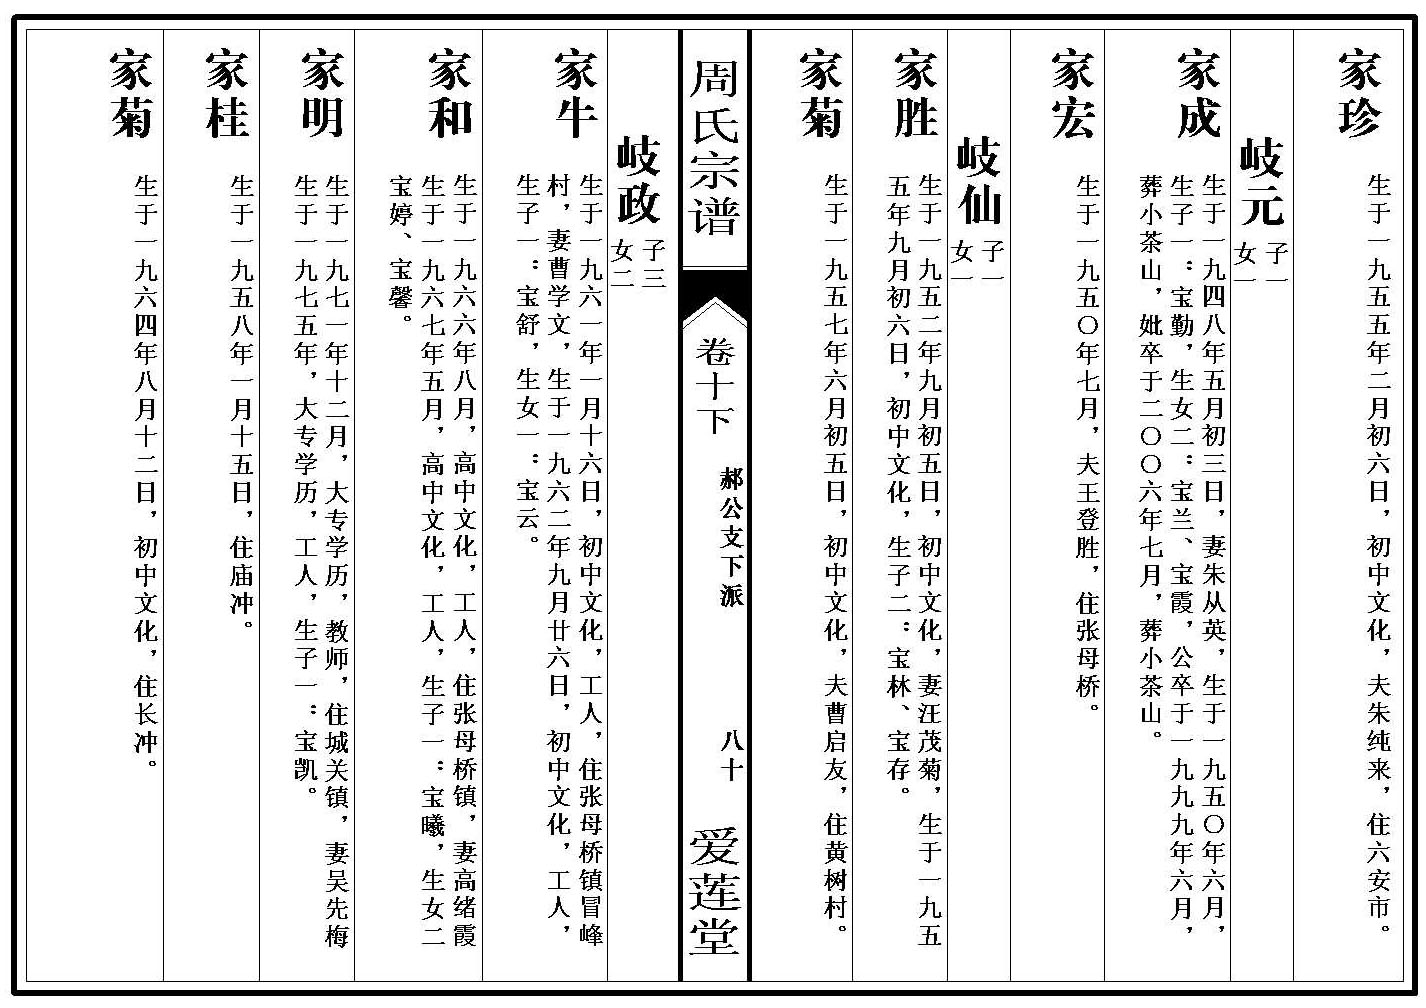 家珍
生于一九五五年二月初六日，初中文化，夫朱纯来，住六安市。
岐元
子一
女一
家成
生于一九四八年五月初三日，妻朱从英，生于一九五〇年六月，
生子一：宝勤，生女二：宝兰、宝霞，公卒于一九九九年六月，
葬小茶山，妣卒于二〇〇六年七月，葬小茶山。
家宏
生于一九五〇年七月，夫王登胜，住张母桥。
岐仙
子一
女一
家胜
生于一九五二年九月初五日，初中文化，妻汪茂菊，生于一九五
五年九月初六日，初中文化，生子二：宝林、宝存。
家菊
生于一九五七年六月初五日，初中文化，夫曹启友，住黄树村。
周氏宗谱
卷十下
郝公支下派
八十
爱莲堂
岐政
子三
女二
家牛
生于一九六一年一月十六日，初中文化，工人，住张母桥镇冒峰
村，妻曹学文，生于一九六二年九月廿六日，初中文化，工人，
生子一：宝舒，生女一：宝云。
家和
生于一九六六年八月，高中文化，工人，住张母桥镇，妻高绪霞
生于一九六七年五月，高中文化，工人，生子一：宝曦，生女二
宝婷、宝馨。
家明
生于一九七一年十二月，大专学历，教师，住城关镇，妻吴先梅
生于一九七五年，大专学历，工人，生子一：宝凯。
家桂
生于一九五八年一月十五日，住庙冲。
家菊
生于一九六四年八月十二日，初中文化，住长冲。